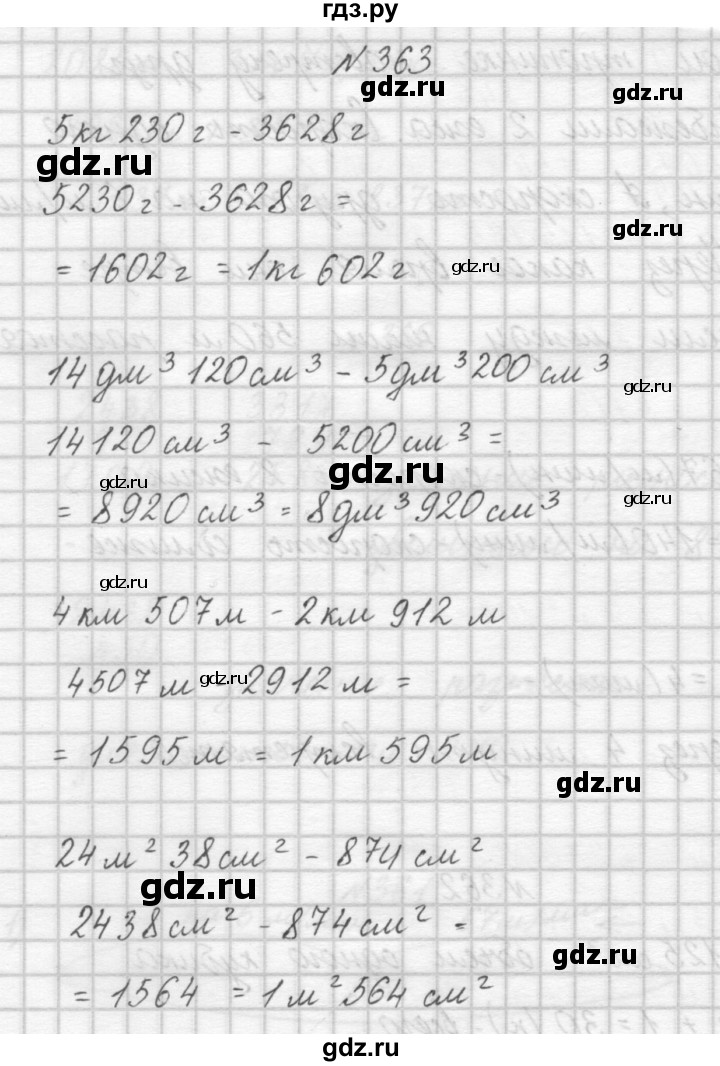 гдз.ру
№363
gdz.ru
gdz.ru
5кг 230г - 3628г
gdz.ru
5230г - 3628г =
gdz.ru
= 1602г = 1кг 602г
gdz.ru
14дм³ 120см³ - 5дм³ 200см³
gdz.ru
14120см³ - 5200см³ =
gdz.ru
gdz.ru
= 8920см³ = 8дм³ 920см³
gdz.ru
gdz.ru
4км 507м - 2км 912м
4507м - 2912м =
gdz.ru
= 1595м = 1км 595м
gdz.ru
24м² 38см² - 874см²
gdz.ru
2438см² - 874см² =
gdz.ru
= 1564 = 1м² 564см²
gdz.ru